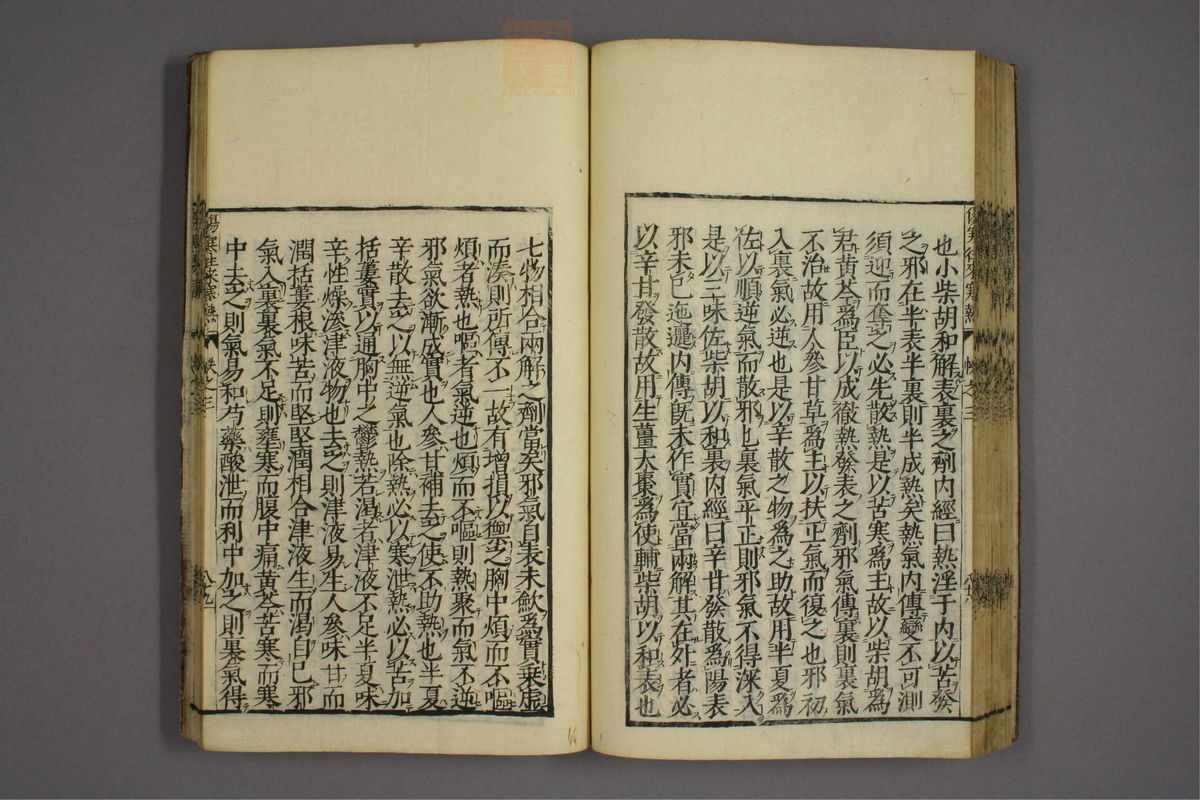 也小柴胡和解表裏之劑內經曰熱淫于內以苦發
之邪在半表半裏則半成熱矣熱氣內傳變不可測
須迎而奪之必先散熱是以苦寒爲主故以柴胡爲
君黃芩爲臣以成徹熱發表之劑邪氣傳裏則裏氣
不治故用人參甘草爲主以扶正氣而復之也邪初
入裏氣必逆也是以辛散之物爲之助故用半夏爲
佐以順逆氣而散邪也裏氣平正則邪氣不得深入
是以三味佐柴胡以和裏內經曰辛甘發散爲陽表
邪未已迤邐內傳旣未作實宜當兩解其在外者必
以辛甘發散故用生薑大棗爲使輔柴胡以和表也
七物相合兩解之劑當矣邪氣自表未歛爲實乗虛
而湊則所傳不一故有增損以禦之胸中煩而不嘔
煩者熱也嘔者氣逆也煩而不嘔則熱聚而氣不逆
邪氣欲漸成實也人參甘補去之使不助熱也半夏
辛散去之以無逆氣也除熱必以寒泄熱必以苦加
括蔞實以通胸中之鬱熱若渴者津液不足半夏味
辛性燥滲津液物也去之則津液易生人參味甘而
潤括蔞根味苦而堅堅潤相合津液生而渴自已邪
氣入裏裏氣不足則壅寒而腹中痛黃芩苦寒而寒
中去之則氣易和芍藥酸泄而利中加之則裏氣得
傷寒往來寒熱
卷之三
八九